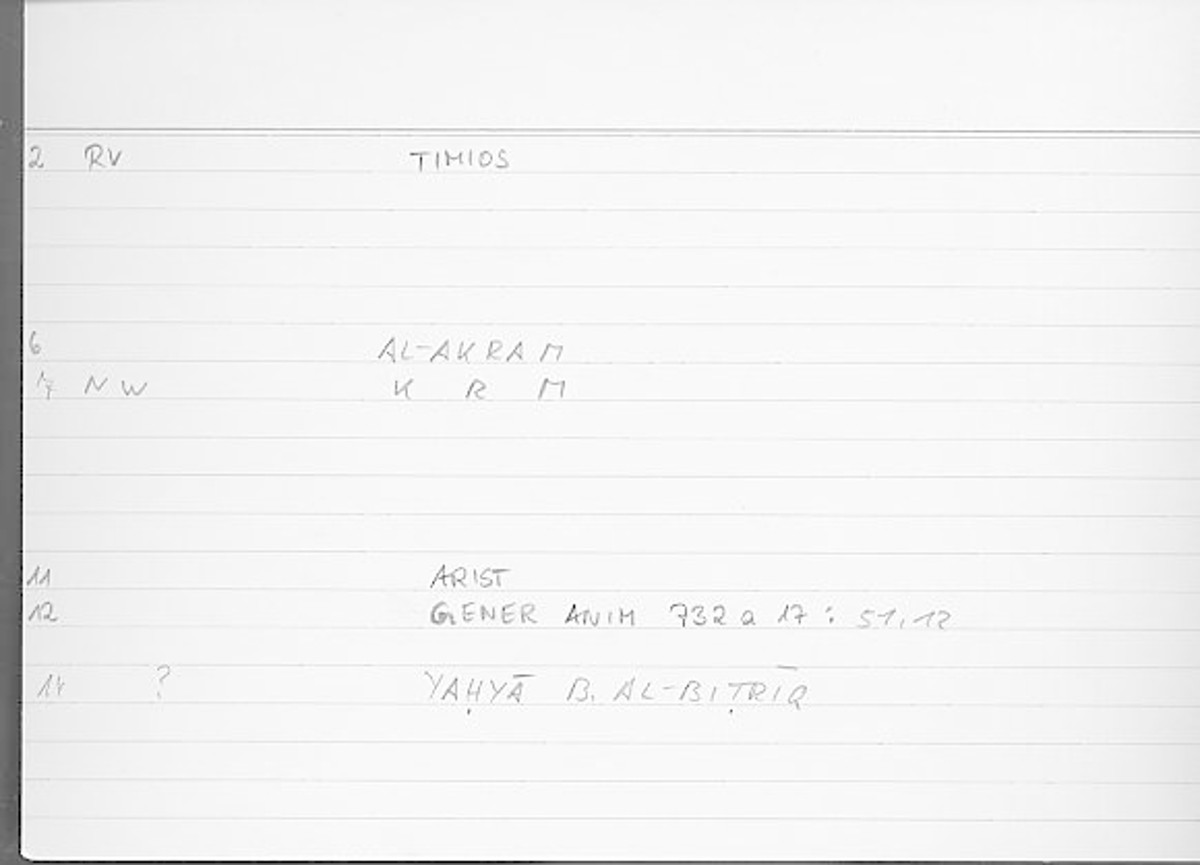 2 RV TIMIOS
6 AL-AKRAM
7 NW K R M
11 ARIST
12 GENER ANIM 732 a 17 : 51,12
14 ? YAḤYĀ B. AL-BIṬRĪQ